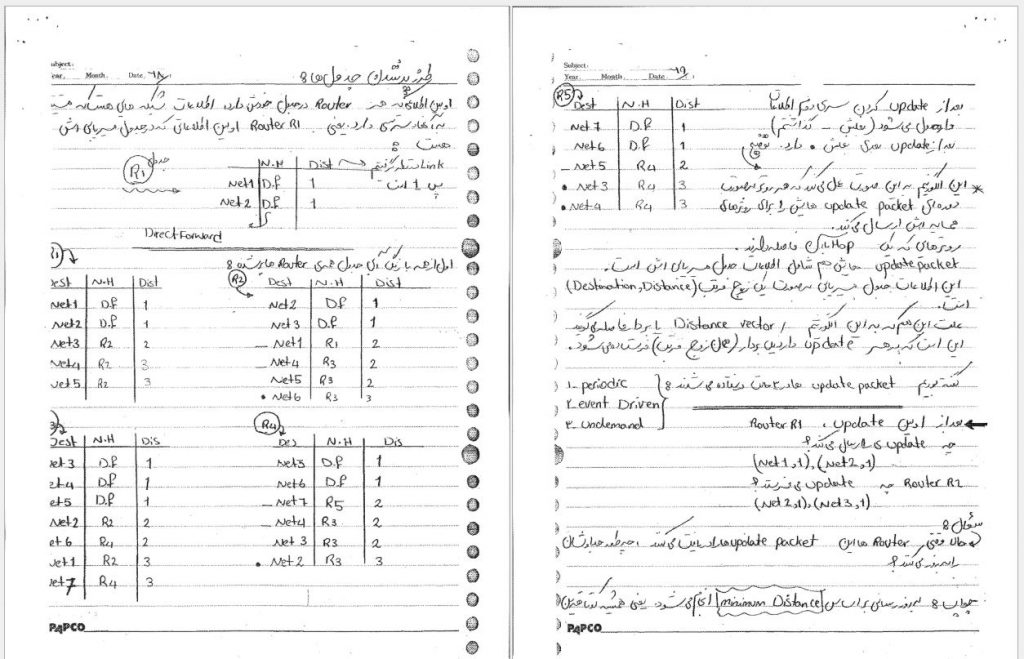 Subject:
Year. Month. Date. ۹۸
طرز پر شدن جدول ها 8
اولین اطلاعی که هر Router در جدول خودش دارد، اطلاعات شبکه های هستند که
به آنها دسترسی دارد. یعنی Router R1 اولین اطلاعاتی که در جدول مسیریابی اش
هست 8
جدول R1
N.H Dist
Net1 D.f 1
Net2 D.f 1
پس 1 است
Direct Forward
اول از همه با رنگ آبی جدول همه ی Router ها پر شده 8
R1
Dest N.H Dist
Net1 D.f 1
Net2 D.f 1
Net3 R2 2
Net4 R2 3
Net5 R2 3
R2
Dest N.H Dist
Net2 D.f 1
Net3 D.f 1
_ Net1 R1 2
_ Net4 R3 2
_ Net5 R3 2
• Net6 R3 3
R3
Dest N.H Dis
Net3 D.f 1
Net4 D.f 1
Net5 D.f 1
Net2 R2 2
Net6 R4 2
Net1 R2 3
Net7 R4 3
R4
Des N.H Dis
Net5 D.f 1
Net6 D.f 1
_ Net7 R5 2
_ Net4 R3 2
_ Net3 R3 2
• Net2 R3 3
PAPCO
Subject:
Year. Month. Date. ۹۹
R5
Dest N.H Dist
Net7 D.f 1
Net6 D.f 1
_ Net5 R4 2
• Net3 R4 3
• Net4 R4 3
بعد از update کردن سری دوم اطلاعات
ما وصل می شود (علامت _ گذاشتم)
بعد از update بعدی علامت • دارد. توضیح
* این الگوریتم به این صورت عمل می کند که هر روتر بصورت
دوره ای update packet هایش را برای روترهای
همسایه اش ارسال می کند.
روترهای که یک Hop با هم فاصله دارند.
update packet هایش هم شامل اطلاعات جدول مسیریابی اش است.
این اطلاعات جدول مسیریابی بصورت یک زوج مرتب (Destination, Distance)
است.
علت این هم که به این الگوریتم، Distance vector یا بردار فاصله می گویند
این است که در هر update دارد این بردار (مثل زوج مرتب) فرستاده می شود.
گفته بودیم update packet ها در ۳ حالت فرستاده می شدند 8
1_ periodic
2_ event Driven
3_ undemand
بعد از اولین update، Router R1
چه update ی ارسال می کند؟
(Net1,1),(Net2,1)
Router R2 چه update ی می فرستد؟
(Net2,1),(Net3,1)
سؤال 8
حالا وقتی Router ها این update packet ها را دریافت می کنند، چطور جداولشان
را به روز می کنند؟
جواب 8 به روز رسانی بر اساس minimum Distance انجام می شود. یعنی همیشه کوتاهترین
PAPCO